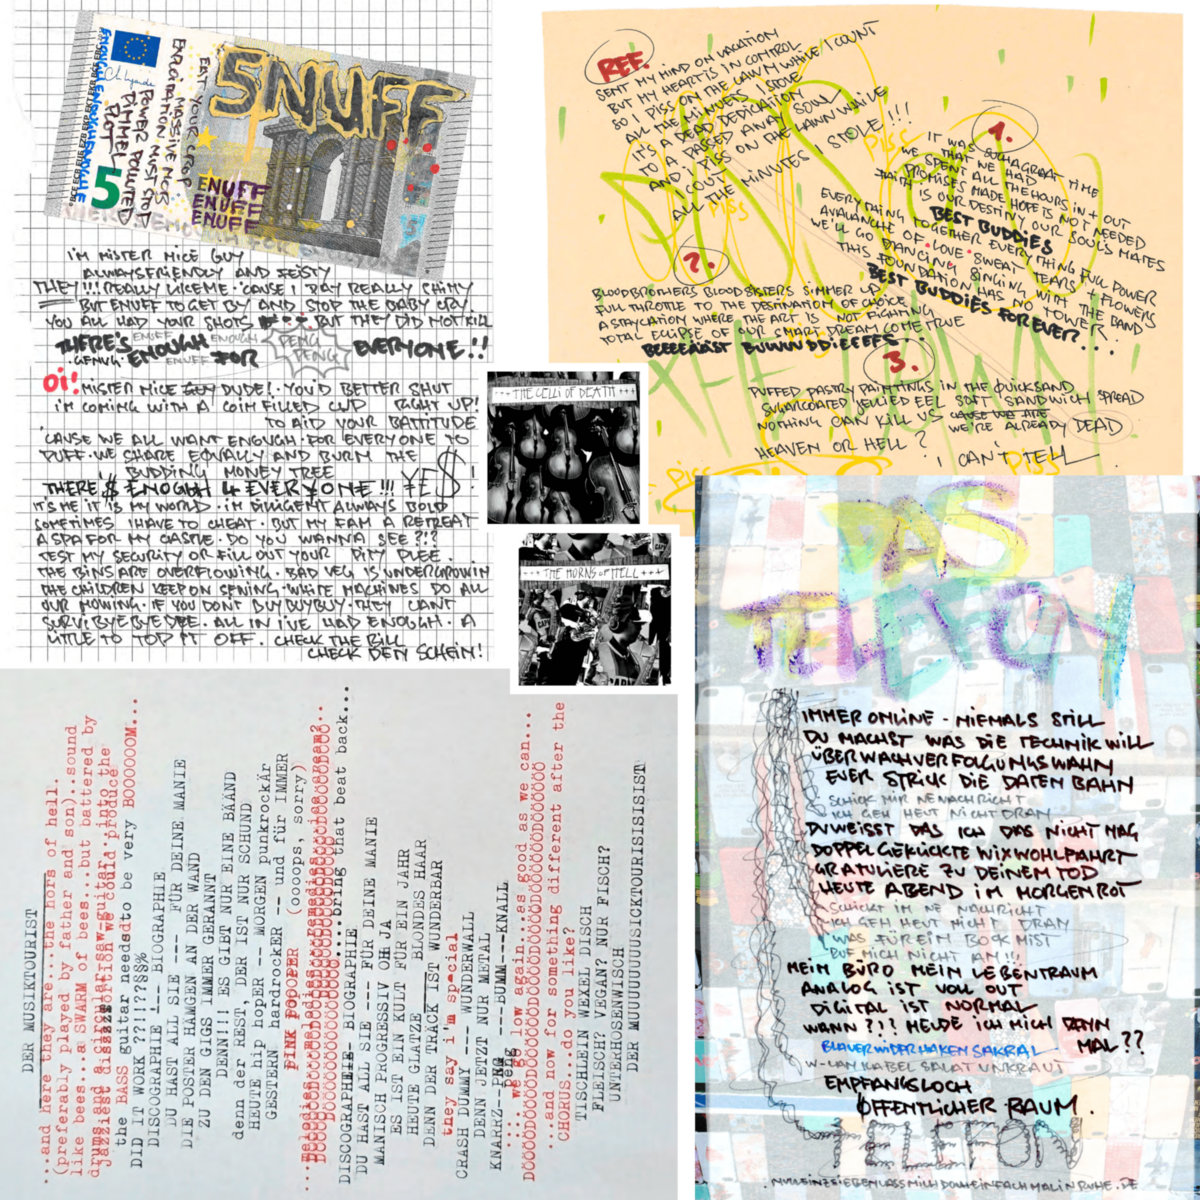 5NUFF
EAT YOUR CROP
MASSIVE NOPS
EXPLOITATION MUST STOP
POWER POINTED
PIMMEL
PLOT
ENUFF
ENUFF
ENUFF
5
I'M MISTER NICE GUY
ALWAYS FRIENDLY AND FEISTY
THEY!!! REALLY LIKE ME · 'CAUSE I PAY REALLY SHITTY
BUT ENUFF TO GET BY AND STOP THE BABY CRY
YOU ALL HAD YOUR SHOTS BUT THEY DID NOT KILL
THERE'S ENOUGH FOR PENG PENG EVERYONE!!
OI! MISTER NICE GUY DUDE! · YOU'D BETTER SHUT
I'M COMING WITH A COIN FILLED CUP RIGHT UP!
TO AID YOUR BATTITUDE
'CAUSE WE ALL WANT ENOUGH · FOR EVERYONE TO
PUFF · WE SHARE EQUALLY AND BURN THE
BUDDING MONEY TREE
THERE'$ ENOUGH 4 EVERYONE!!! ¥E$!
IT'S ME IT IS MY WORLD · I'M DILIGENT ALWAYS BOLD
SOMETIMES I HAVE TO CHEAT · BUT MY FAM A RETREAT
A SPA FOR MY CASTLE · DO YOU WANNA SEE?!?
TEST MY SECURITY OR FILL OUT YOUR PITY PLEE.
THE BINS ARE OVERFLOWING · BAD VEG IS UNDERGROWIN
THE CHILDREN KEEP ON SEWING · WHITE MACHINES DO ALL
OUR MOWING · IF YOU DONT BUYBUYBUY · THEY CANT
SURVIBYEBYEBEE. ALL IN I'VE HAD ENOUGH · A
LITTLE TO TOP IT OFF. CHECK THE BILL
CHECK DEN SCHEIN!
REF.
SENT MY MIND ON VACATION
BUT MY HEART IS IN CONTROL
SO I PISS ON THE LAWN WHILE I COUNT
ALL THE MINUTES I STOLE
IT'S A DEAD DEDICATION
TO A PASSED AWAY SOUL
AND I PISS ON THE LAWN WAIVE
I COUT
ALL THE MINUTES I STOLE!!!
1.
IT WAS SUCH A GREAT TIME
WE THAT WE HAD
WE SPENT ALL THE HOURS IN + OUT
PROMISES MADE HOPE IS NOT NEEDED
FAITH IS OUR DESTINY OUR SOUL'S MATES
BEST BUDDIES
EVERYTHING TOGETHER EVERYTHING FULL POWER
AVALANCHE OF · LOVE · SWEAT TEARS + FLOWERS
WE'LL GO DANCING SINGING WITH THE BAND
THIS FOUNDATION HAS NO TOWER
BEST BUDDIES FOREVER...
2.
BLOODBROTHERS BLOODSISTERS SIMMER UP
FULL THROTTLE TO THE DESTINATION OF CHOICE
A STAYCATION WHERE THE ART IS NOT FIGHTING
TOTAL ECLIPSE OF OUR SMART DREAM COME TRUE
BEEEEÄÄST BUWWDDIECEFS..
3.
PUFFED PASTRY PAINTINGS IN THE QUICKSAND
SUGARCOATED JELLIED EEL SOFT SANDWICH SPREAD
NOTHING CAN KILL US CAUSE WE ARE
WE'RE ALREADY DEAD
HEAVEN OR HELL? I CAN'T TELL
PISS
PISS
PISS
PISS
--- THE CELLI OF DEATH +++
--- THE HORNS OF HELL +++
DER MUSIKTOURIST
...and here they are...the hors of hell.
(preferably played by father and son)..sound
like bees...a SWARM of bees...but battered by
drums and a circular-saw-guitar..into the
jazziest we could produce
the BASS guitar needsdto be very BOOOOOOM...
DID IT WORK ??!!??§§%
DISCOGRAPHIE !--- BIOGRAPHIE
DU HAST ALL SIE --- FÜR DEINE MANIE
DIE POSTER HÄMGEN AN DER WAND
ZU DEN GIGS IMMER GERANNT
DENN!!! ES GIBT NUR EINE BÄÄND
denn der REST, DER IST NUR SCHUND
HEUTE hip hoper -- MORGEN punkrockär
GESTERN hardrocker -- und für IMMER
PINK POOPER (oooops, sorry)
...bring that beat back...
DISCOGRAPHIE- BIOGRAPHIE
DU HAST ALL SIE ---- FÜR DEINE MANIE
MANISCH PROGRESSIV OH JA
ES IST EIN KULT FÜR EIN JAHR
HEUTE GLATZE BLONDES HAAR
DENN DER TRACK IST WUNDERBAR
they say i'm special
CRASH DUMMY ---- WUNDERWALL
DENN JETZT NUR METAL
KNARRZ--PENG ----BUMM---KNALL
... we go low again...as good as we can...
...and now for something different after the
CHORUS...do you like?
TISCHLEIN WEXEL DISCH
FLEISCH? VEGAN? NUR FISCH?
UNTERHOSENWISCH
DER MUUUUUUUUSICKTOURISISISIST
DAS
TELEFON
IMMER ONLINE - NIEMALS STILL
DU MACHST WAS DIE TECHNIK WILL
ÜBERWACHVERFOLGUNGSWAHN
EUER STRICK DIE DATENBAHN
SCHICK MIR NE NACHRICHT
ICH GEH HEUT NICHT DRAN
DU WEISST DAS ICH DAS NICHT MAG
DOPPELGEKLICKTE WIXWOHLFAHRT
GRATULIERE ZU DEINEM TOD
HEUTE ABEND IM MORGENROT
SCHICKT IM NE NACHRICHT
ICH GEH HEUT NICHT DRAN
WAS FÜR EIN BOCKMIST
RUF MICH NICHT AN!!!
MEIN BÜRO MEIN LEBENTRAUM
ANALOG IST VOLL OUT
DIGITAL IST NORMAL
WANN??? MELDE ICH MICH DANN
MAL??
BLAUER WIDERHAKEN SAKRAL
W-LAN KABEL SALAT UNKRAUT
EMPFANGSLOCH
ÖFFENTLICHER RAUM.
TELEFON